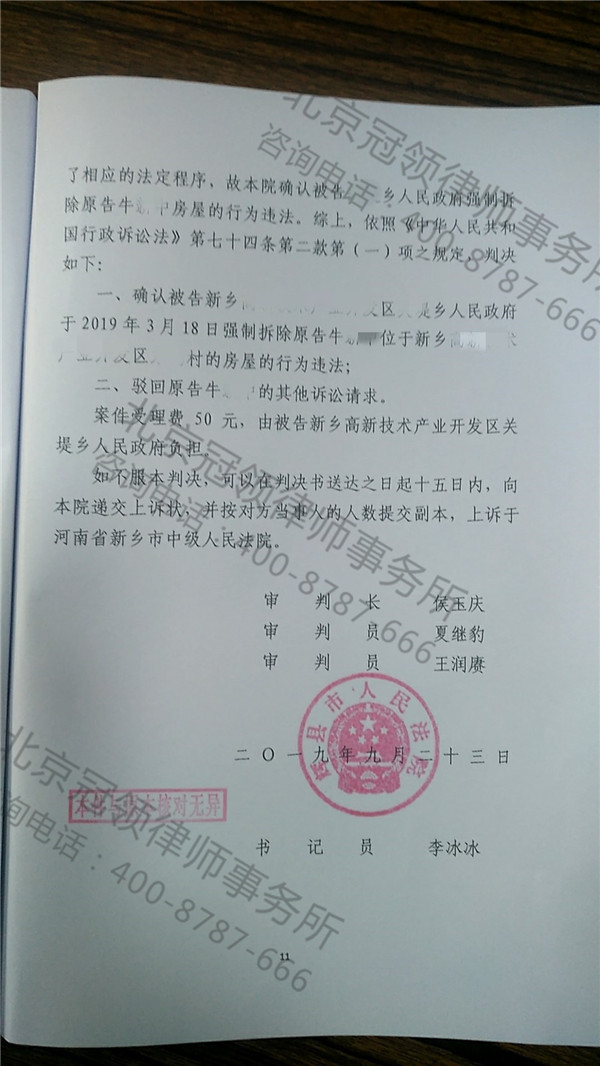 了相应的法定程序，故本院确认被告 乡人民政府强制拆
除原告牛 房屋的行为违法。综上，依照《中华人民共和
国行政诉讼法》第七十四条第二款第（一）项之规定，判决
如下：
一、确认被告新乡 开发区关堤乡人民政府
于 2019 年 3 月 18 日强制拆除原告牛 位于新乡高新 术
产业开发区 村的房屋的行为违法；
二、驳回原告牛 的其他诉讼请求。
案件受理费 50 元，由被告新乡高新技术产业开发区关
堤乡人民政府负担。
如不服本判决，可以在判决书送达之日起十五日内，向
本院递交上诉状，并按对方当事人的人数提交副本，上诉于
河南省新乡市中级人民法院。
审 判 长 侯玉庆
审 判 员 夏继豹
审 判 员 王润赓
市人民法院
二〇一九年九月二十三日
本件与原本核对无异
书 记 员 李冰冰
11
北京冠领律师事务所
咨询电话：400-8787-666
北京冠领律师事务所
咨询电话：400-8787-666
北京冠领律师事务所
咨询电话：400-8787-666